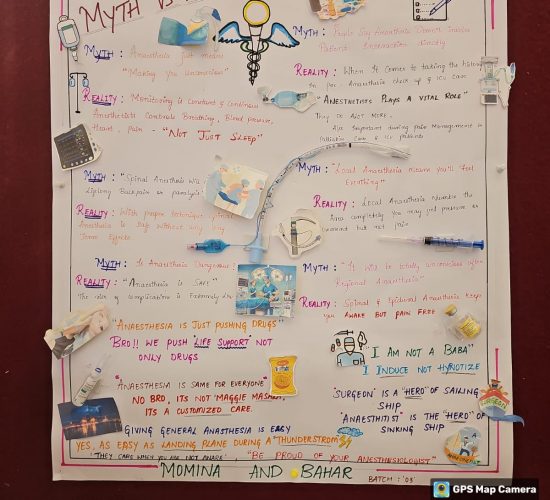 MYTH
MYTH: Anaesthesia just means
"Making you Unconscious"
REALITY: Monitoring is Constant & Continuous
Anaesthetist Controls Breathing, Blood pressure,
Heart, Pain - "NOT JUST SLEEP"
MYTH: "Spinal Anesthesia
Lifelong Backpain or paralysis"
REALITY: With proper technique,
Anesthesia is Safe without any long
Term Effects.
MYTH: Is Anaesthesia Dangerous?
REALITY: "Anaesthesia is SAFE"
The risk of complications is Extremely low
MYTH:
Patient Interaction directly
REALITY: When it comes to taking the history
Pre Anaesthesia check up & ICU care
"ANESTHETISTS PLAYS A VITAL ROLE"
They do ALOT MORE.
Also Important during pain Management in
Palliative Care & ICU patients
MYTH: "Local Anaesthesia means you'll feel
Everything"
REALITY: Local Anaesthesia Numbs the
Area completely you may feel pressure or
movement but not pain
MYTH: "It will be totally unconscious after
Regional Anaesthesia"
REALITY: Spinal & Epidural Anaesthesia keeps
you AWAKE BUT PAIN FREE
"ANAESTHESIA IS JUST PUSHING DRUGS"
BRO!! WE PUSH "LIFE SUPPORT" NOT
ONLY DRUGS
I AM NOT A BABA"
I INDUCE NOT HYPNOTIZE
"ANAESTHESIA IS SAME FOR EVERYONE"
NO BRO, ITS NOT "MAGGIE MASALA",
ITS A CUSTOMIZED CARE.
"SURGEON" IS A "HERO" OF SAILING
SHIP
"ANAESTHITIST" IS THE "HERO" OF
SINKING SHIP
GIVING GENERAL ANASTHESIA IS EASY
YES, AS EASY AS LANDING PLANE DURING A "THUNDERSTROM"
"THEY CARE WHEN YOU ARE NOT AWARE", "BE PROUD OF YOUR ANESTHESIOLOGIST"
MOMINA AND BAHAR
BATCH: '03'
GPS Map Camera